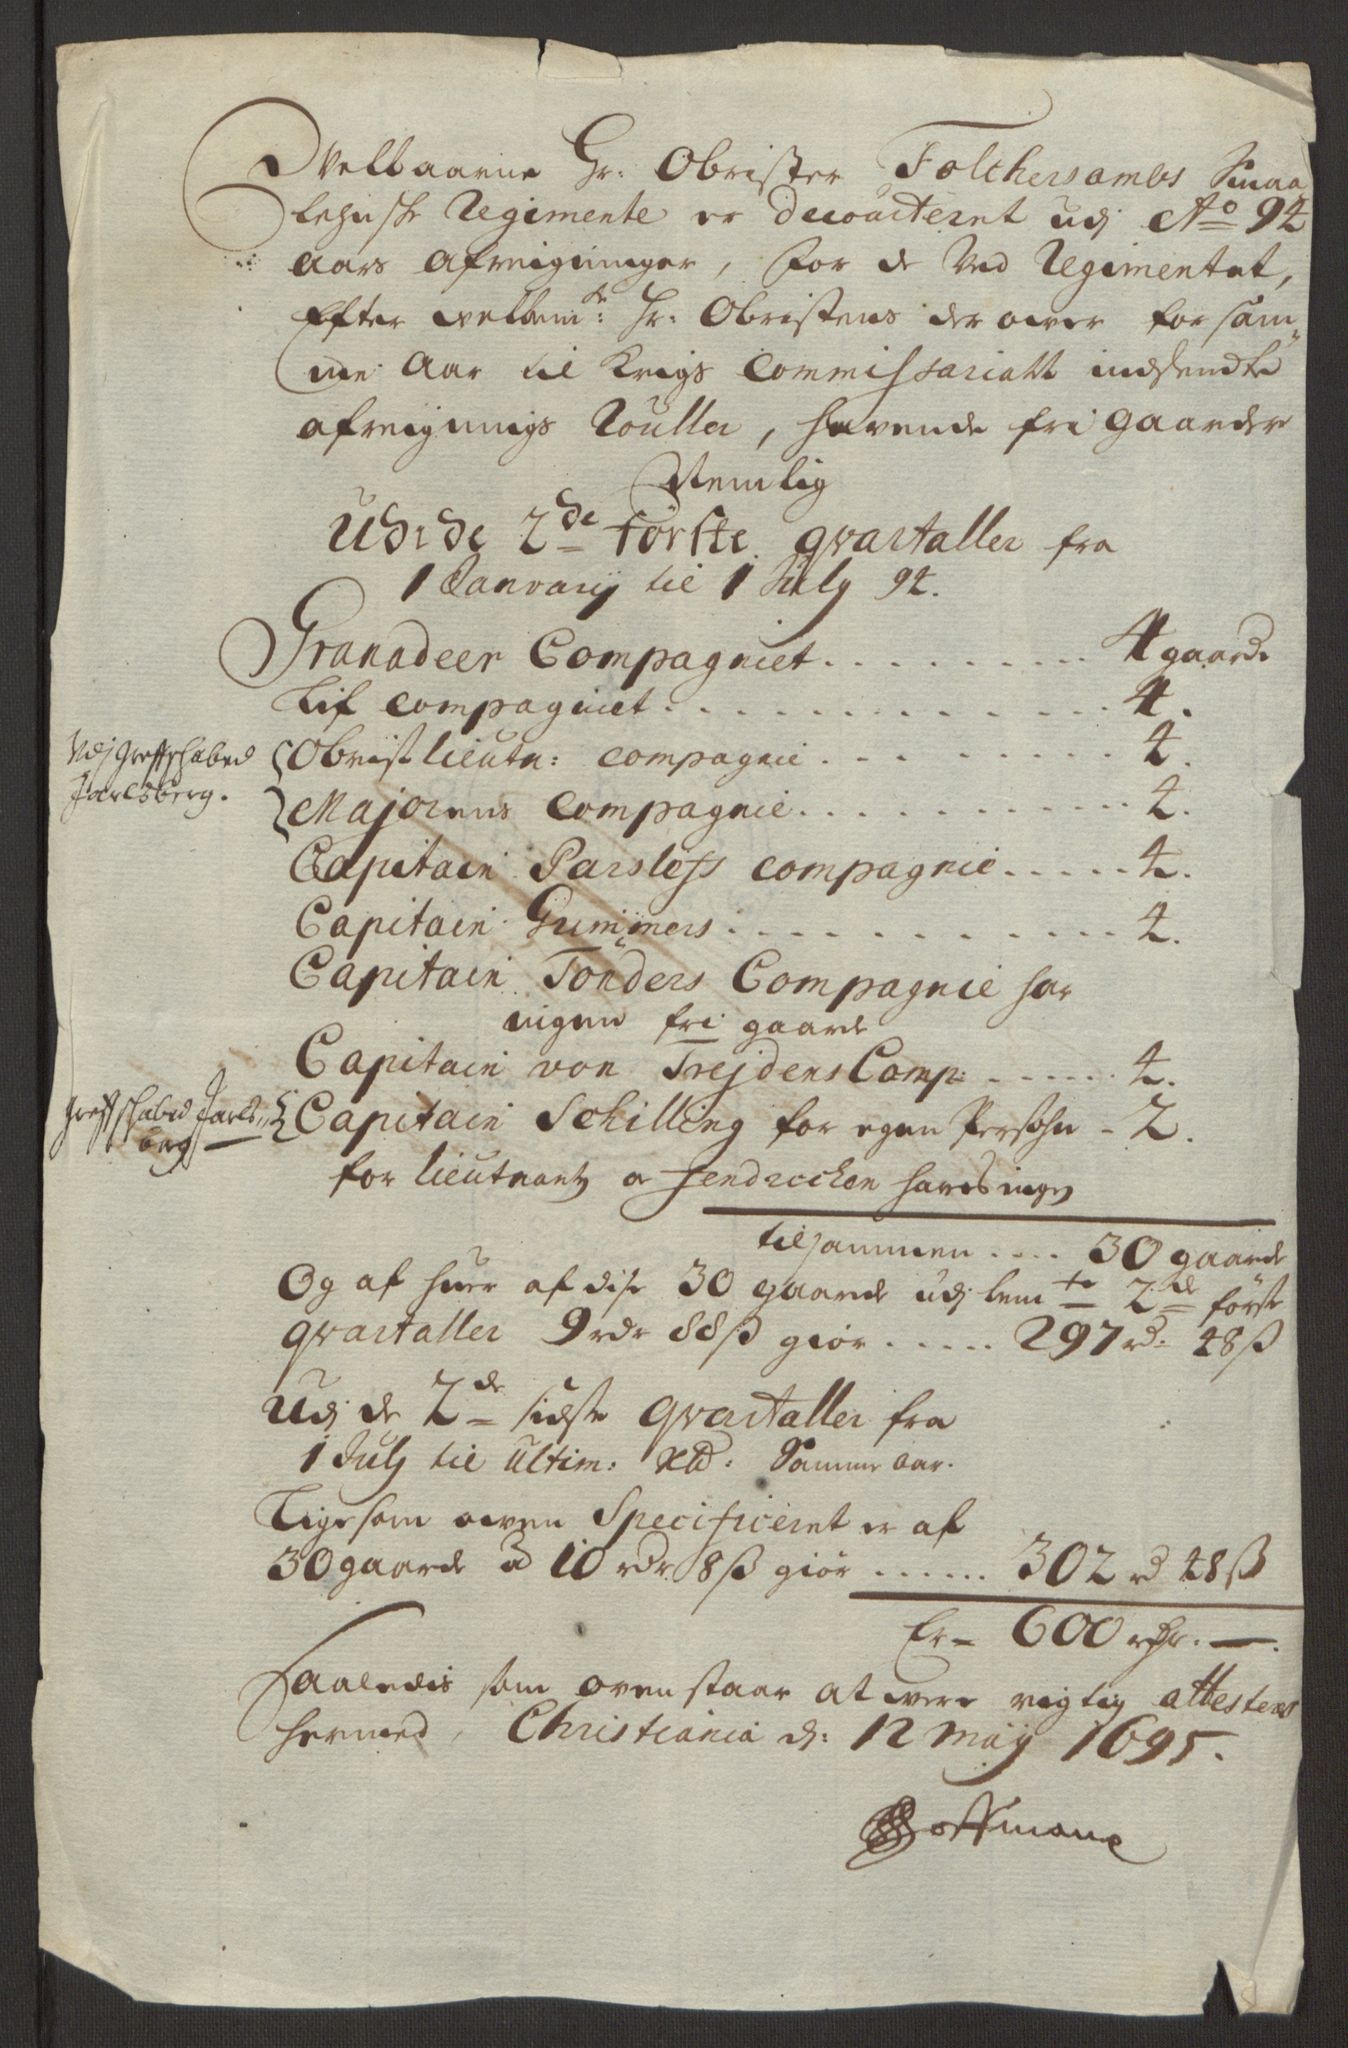 Velbaarne Hr: Obrister Folchersambs Smaa
lehnske Regimente er decourteret udj Ao 94
aars afreigninger, for de ved Regimentet,
Efter velbemte: Hr: Obristens der over for sam„
me Aar til Krigs Commissariatt indsendte
afreignings Rouller, havende fri gaarder
Nemlig
Udi de 2de første qvartaller fra
1 Januarij til 1 July 94.
Granadeer Compagniet . . . . . . . . . . 4 gaarde
Lif compagniet . . . . . . . . . . . . . . 4.
Udj Grefskabed
Jarlsberg.
Obristlieutn: compagnie . . . . . . . . . 4.
Majorens Compagnie . . . . . . . . . . . 4.
Capitain Parsløfs compagnie . . . . . 4.
Capitain Grimmers . . . . . . . . . . . . 4.
Capitain Tonders Compagnie har
ingen fri gaarde
Capitain von Trejdens Comp: . . . . . . 4.
Grefskabed Jarls„
berg
Capitain Schilling for egen Persohn - 2.
for lieutnantz o fendricken haves ingen
tilsammen . . . . 30 gaarde
Og af huer af dise 30 gaarde udj bemte 2de første
qvartaller 9 rdr 88 ß giør . . . . . . 297 rd: 48 ß
Udj de 2de sidste qvartaller fra
1 Julj til Ultim: Xb: Samme aar.
Ligesom oven Specificeret er af
30 gaarde a 10 rdr 8 ß giør . . . . . . 302 rd 48 ß
Er - 600 rdr. —.
Saaledis som ovenstaar at vere rigtig attesteres
hermed, Christiania d: 12 Maij 1695.
Hoffmann